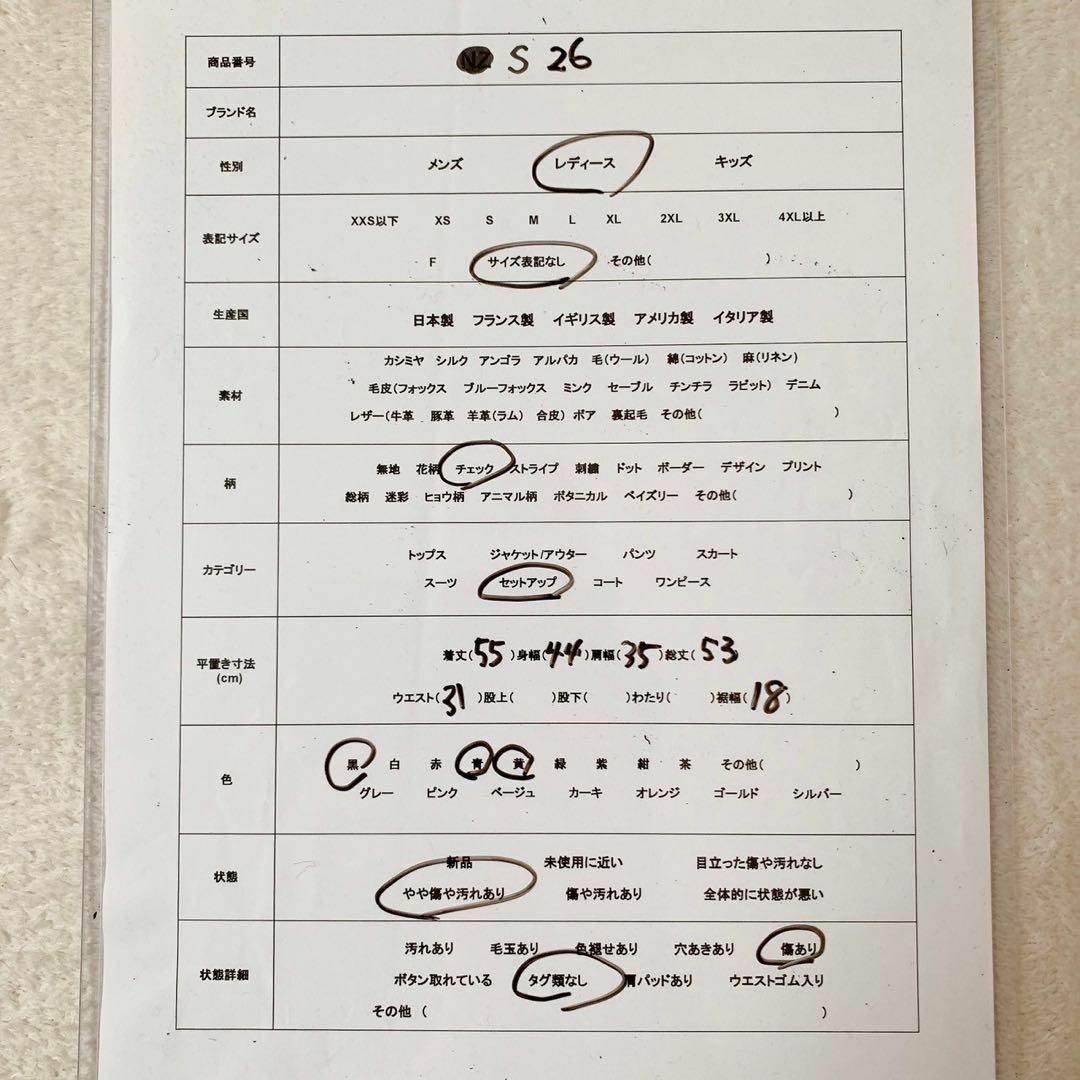 商品番号 NZ S 26
ブランド名
性別 メンズ レディース キッズ
XXS以下 XS S M L XL 2XL 3XL 4XL以上
表記サイズ
F サイズ表記なし その他( )
生産国 日本製 フランス製 イギリス製 アメリカ製 イタリア製
カシミヤ シルク アンゴラ アルパカ 毛(ウール) 綿(コットン) 麻(リネン)
素材 毛皮(フォックス ブルーフォックス ミンク セーブル チンチラ ラビット) デニム
レザー(牛革 豚革 羊革(ラム) 合皮) ボア 裏起毛 その他( )
無地 花柄 チェック ストライプ 刺繍 ドット ボーダー デザイン プリント
柄
総柄 迷彩 ヒョウ柄 アニマル柄 ボタニカル ペイズリー その他( )
トップス ジャケット/アウター パンツ スカート
カテゴリー
スーツ セットアップ コート ワンピース
着丈(55)身幅(44)肩幅(35)総丈(53
平置き寸法
(cm)
ウエスト(31)股上( )股下( )わたり( )裾幅(18)
黒 白 赤 青 黄 緑 紫 紺 茶 その他( )
色
グレー ピンク ベージュ カーキ オレンジ ゴールド シルバー
新品 未使用に近い 目立った傷や汚れなし
状態
やや傷や汚れあり 傷や汚れあり 全体的に状態が悪い
汚れあり 毛玉あり 色褪せあり 穴あきあり 傷あり
状態詳細 ボタン取れている タグ類なし 肩パッドあり ウエストゴム入り
その他 ( )